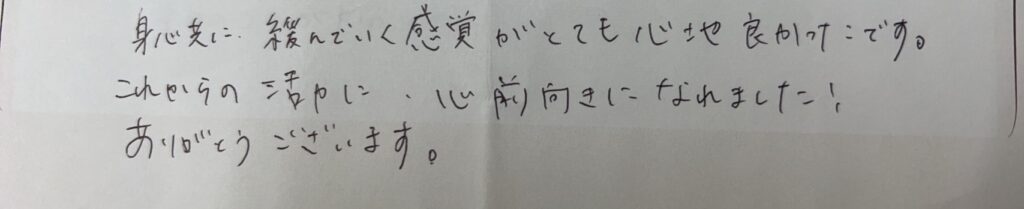 身心共に、緩んでいく感覚がとても心地良かったです。
これからの活力に、心前向きになれました!
ありがとうございます。